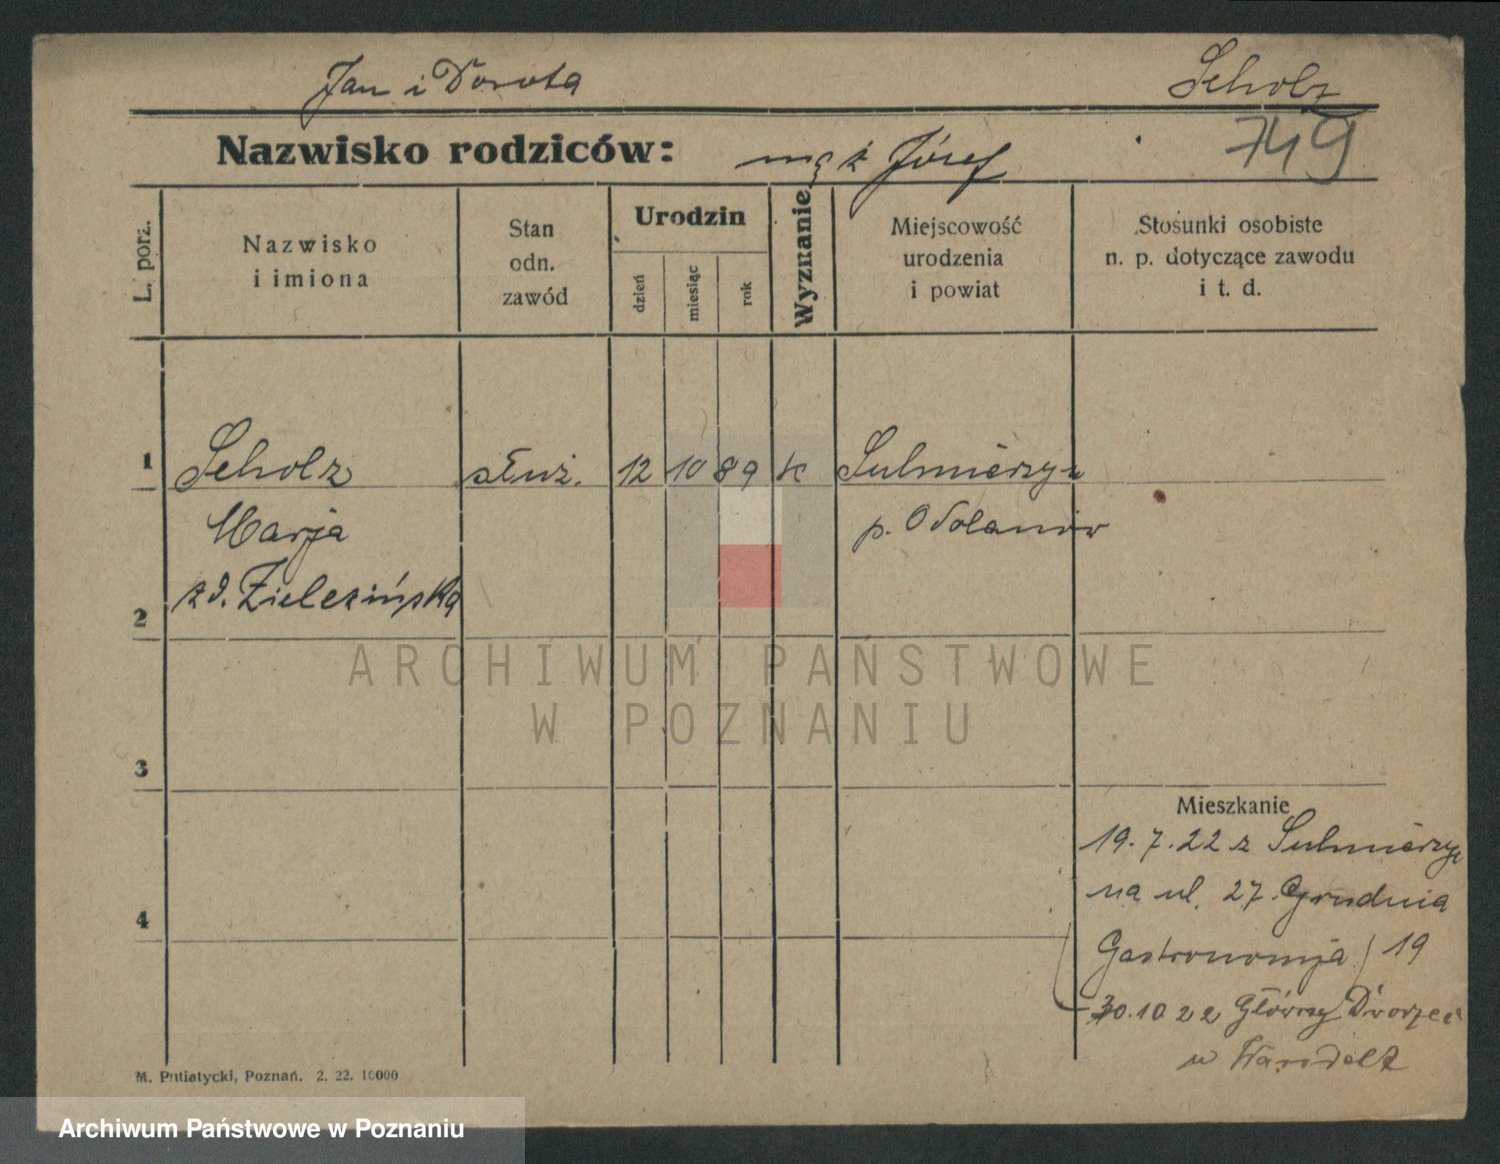 Jan i Dorota
Scholz
Nazwisko rodziców:
mąż Józef
749
L. porz.
Nazwisko
i imiona
Stan
odn.
zawód
Urodzin
dzień
miesiąc
rok
Wyznanie
Miejscowość
urodzenia
i powiat
Stosunki osobiste
n. p. dotyczące zawodu
i t. d.
1
Scholz
służ.
12
10
89
k
Sulmierzyc
Marja
p. Odolanów
2
zd. Zielezińska
ARCHIWUM PAŃSTWOWE
W POZNANIU
3
Mieszkanie
19.7.22 z Sulmierzyc
na ul. 27. Grudnia
4
Gastronomja / 19
30.10 22 Główny Dworzec
u
M. Putiatycki, Poznań. 2. 22. 10000
Archiwum Państwowe w Poznaniu